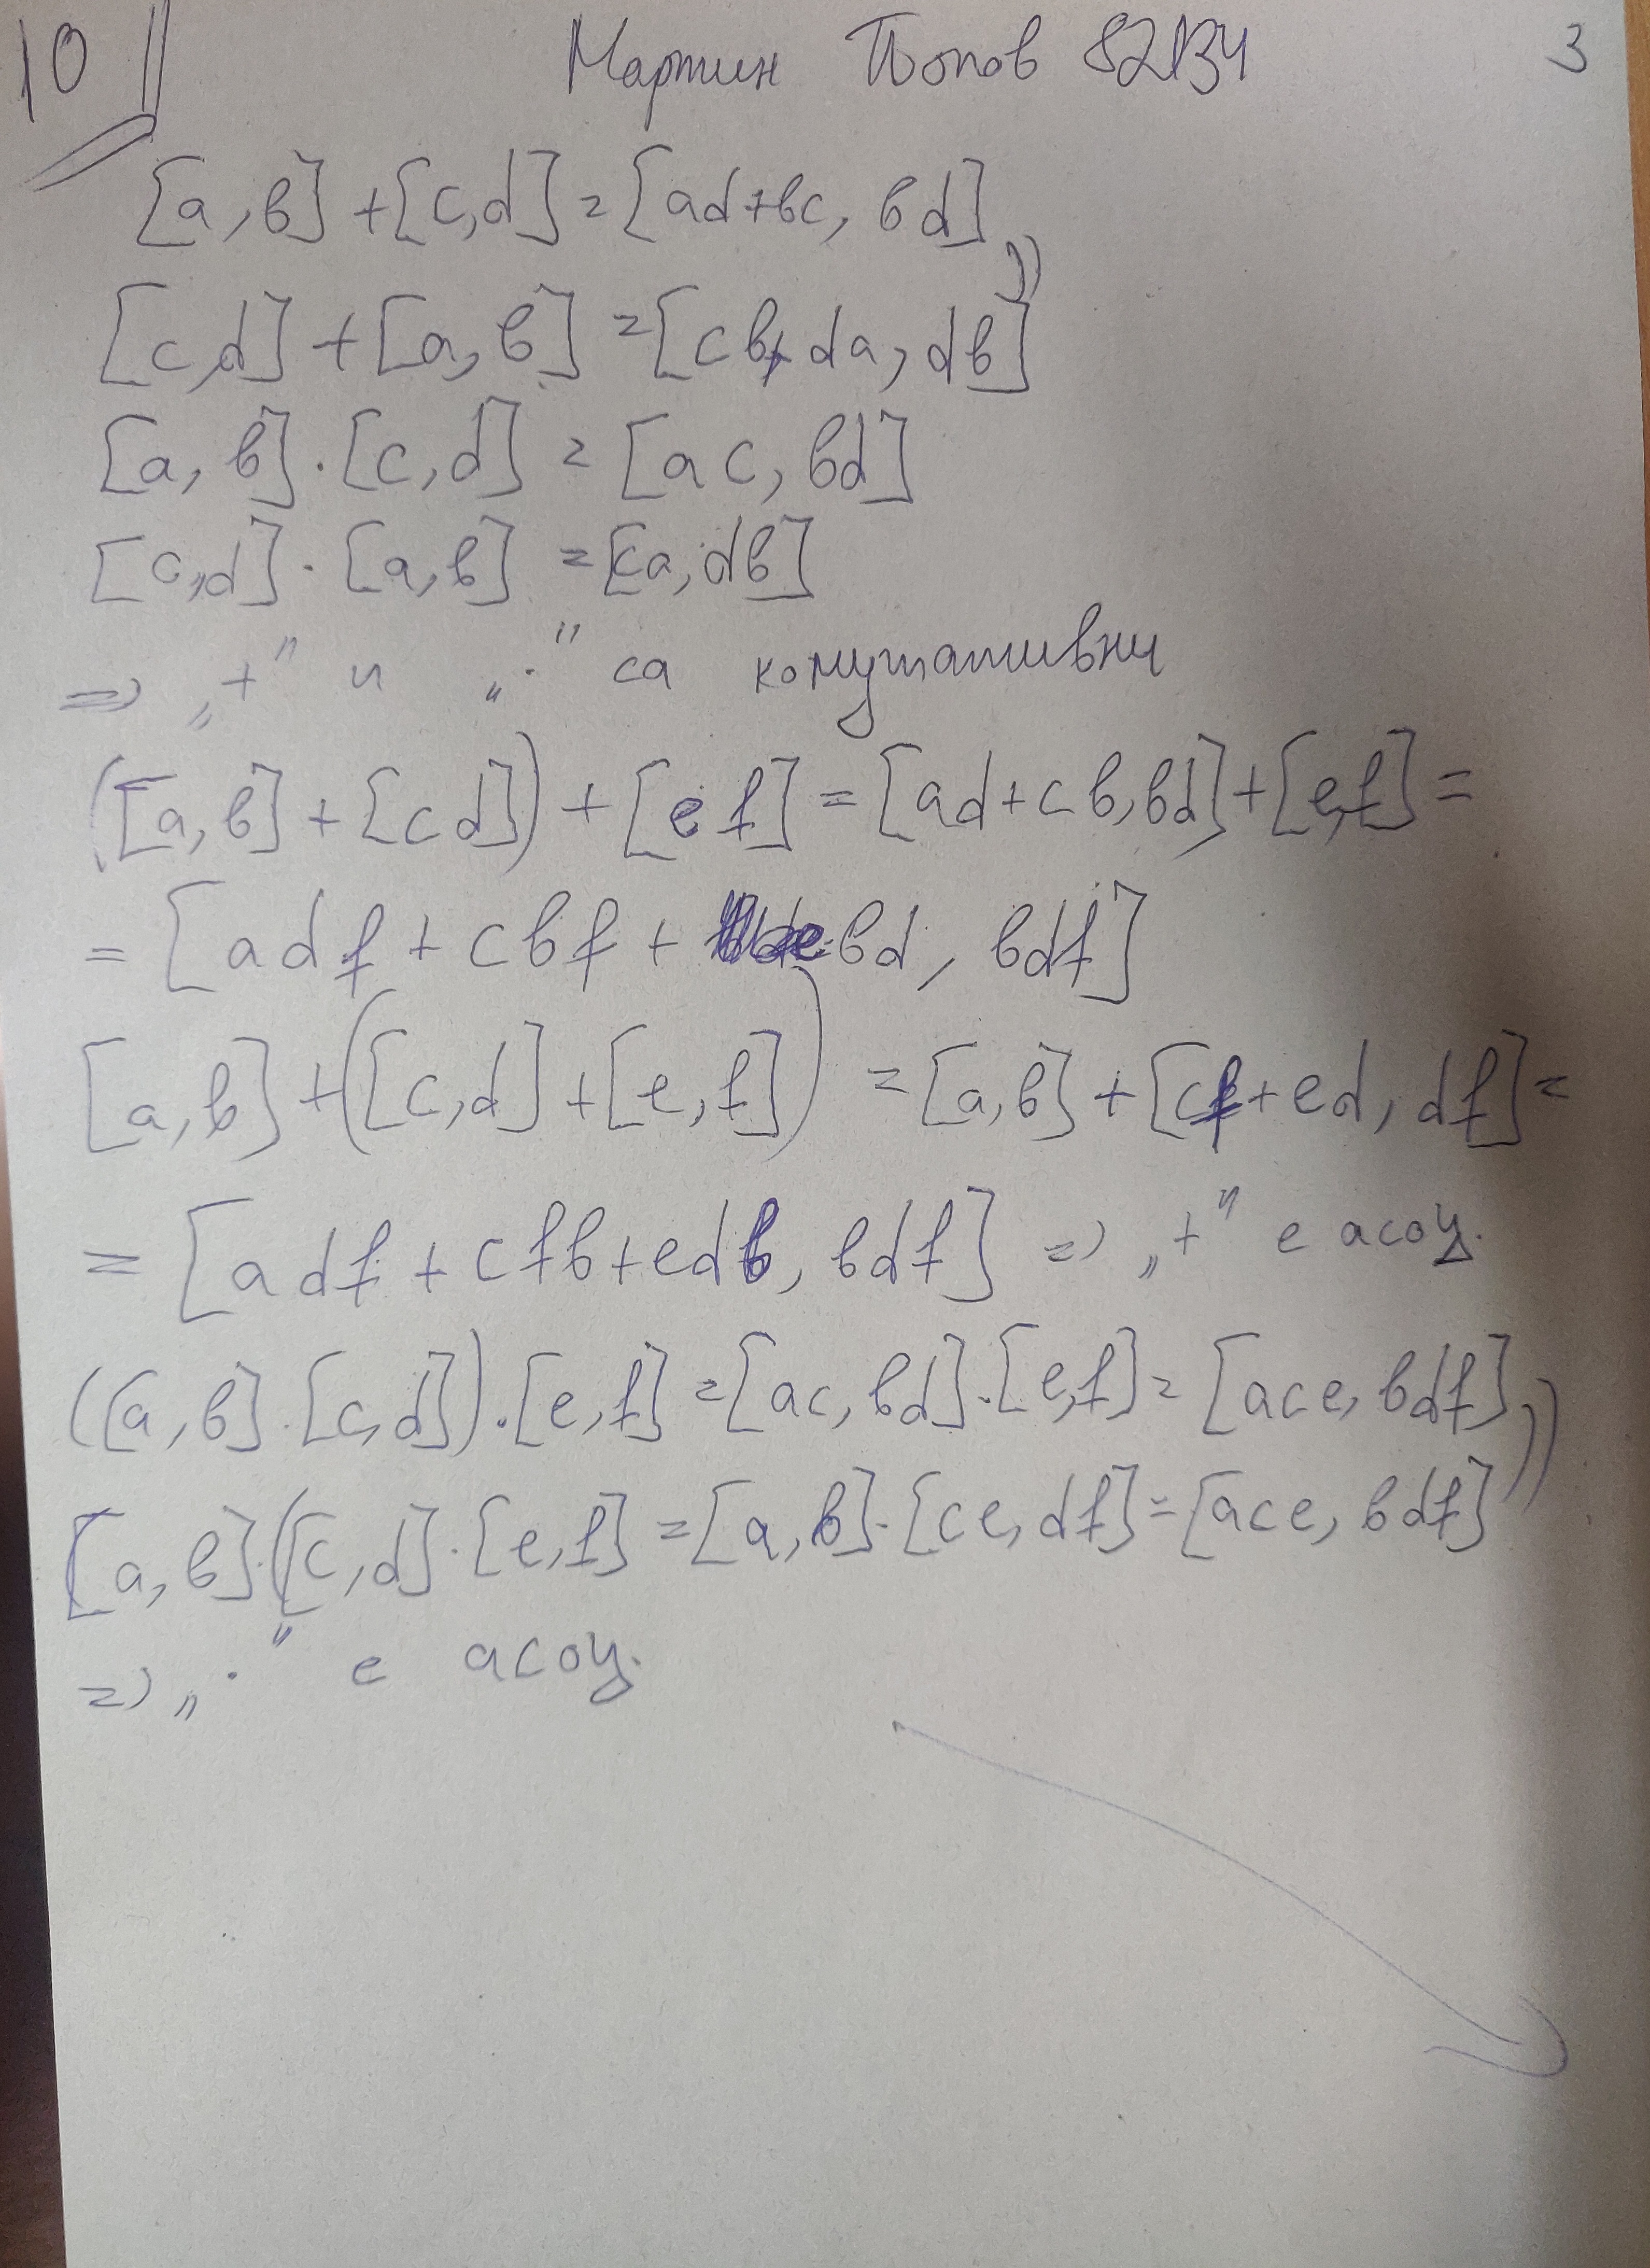 10 Мартин Попов 82134 3
[a, b] + [c, d] = [ad+bc, bd]
[c, d] + [a, b] = [cb+da, db]
[a, b] . [c, d] = [ac, bd]
[c, d] . [a, b] = [ca, db]
=> „+" и „." са комутативни
([a, b] + [c d]) + [e f] = [ad+cb, bd] + [e, f] =
= [adf + cbf + e bd, bdf]
[a, b] + ([c, d] + [e, f]) = [a, b] + [cf+ed, df] =
= [adf + cfb + edb, bdf] => „+" е асоц.
([a, b] . [c, d]) . [e, f] = [ac, bd] . [e, f] = [ace, bdf]
[a, b] . ([c, d] . [e, f] = [a, b] . [ce, df] = [ace, bdf]
=> „." е асоц.